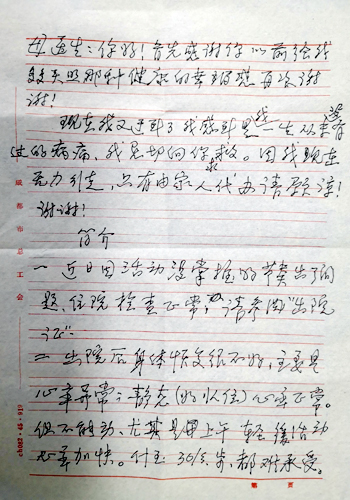 母医生：你好！首先感谢你以前给我
多天的那种健康的幸福感再次谢
谢！
现在我又遇到了我感到是我一生从未有
过的病痛，我急切向你求救。因我现在
无力到走，只有由家人代办请原谅！
谢谢！
简介
一 近日因活动没掌握的节奏出了问
题，住院检查正常，请参阅“出院
证”
二 出院后身体恢复很不好，主要是
心率异常：静态(的状住)心率正常。
但不能动，尤其是上午轻缓活动
心率加快。什至30/3.步，都难承受。
成都市总工会
第 页